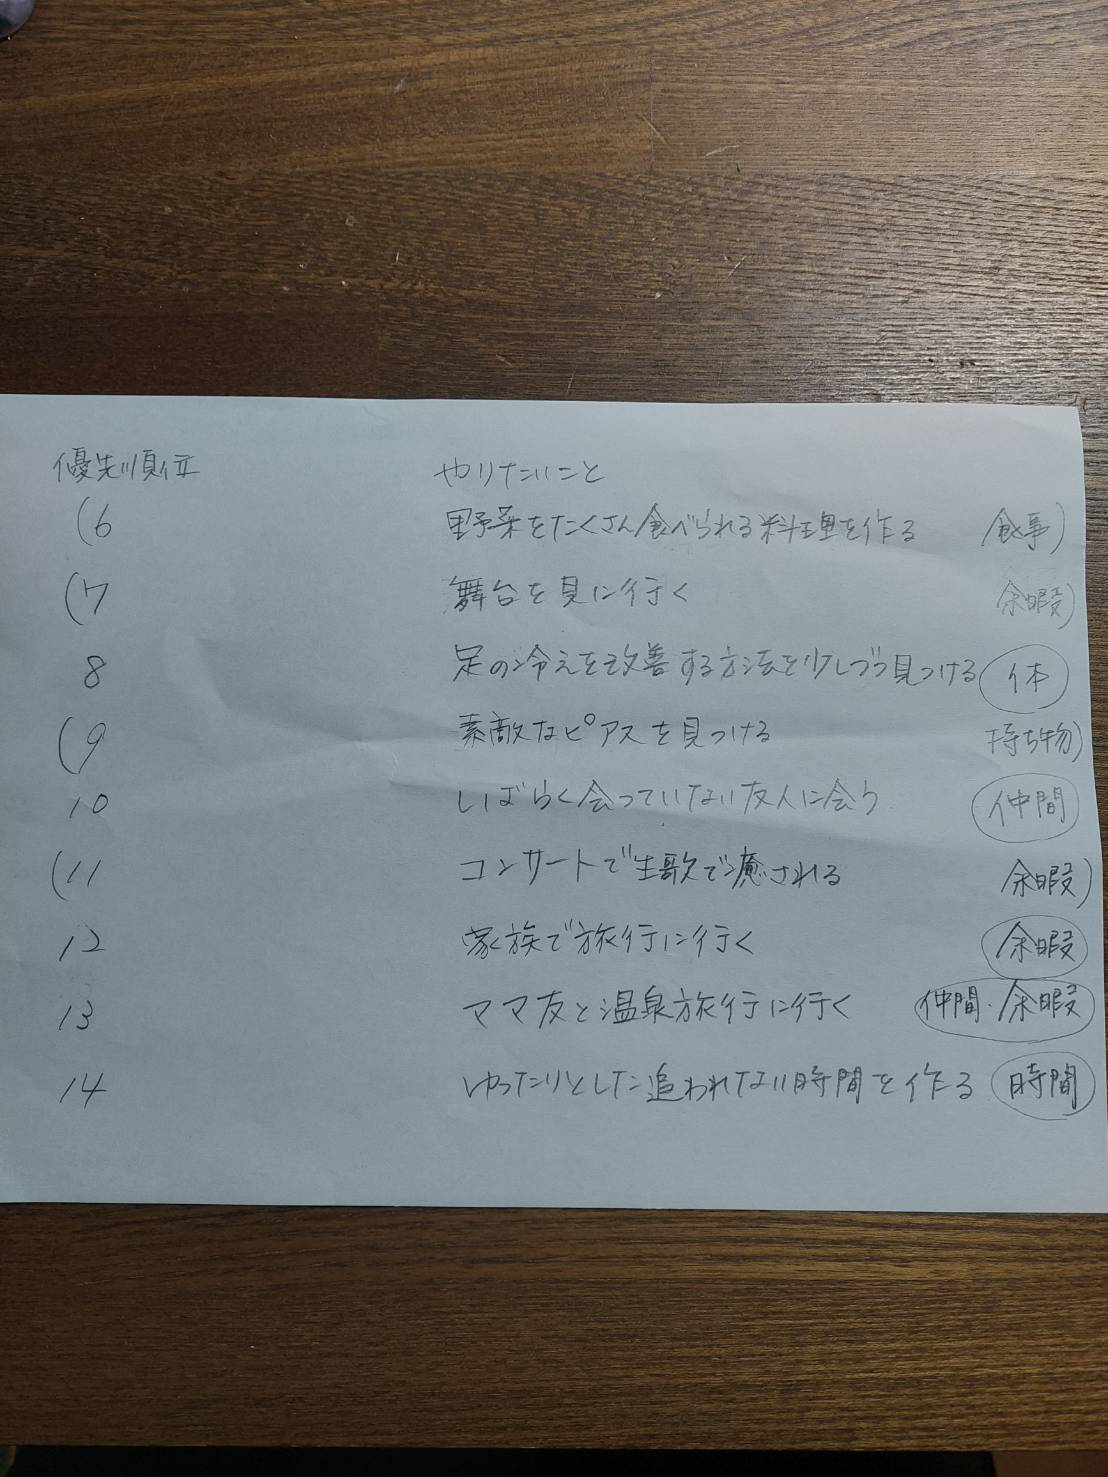 優先順位 やりたいこと
(6 野菜をたくさん食べられる料理を作る 食事)
(7 舞台を見に行く 余暇)
8 足の冷えを改善する方法を少しづつ見つける 体
(9 素敵なピアスを見つける 持ち物)
10 しばらく会っていない友人に会う 仲間
(11 コンサートで生歌で癒される 余暇)
12 家族で旅行に行く 余暇
13 ママ友と温泉旅行に行く 仲間・余暇
14 ゆったりとした追われない時間を作る 時間